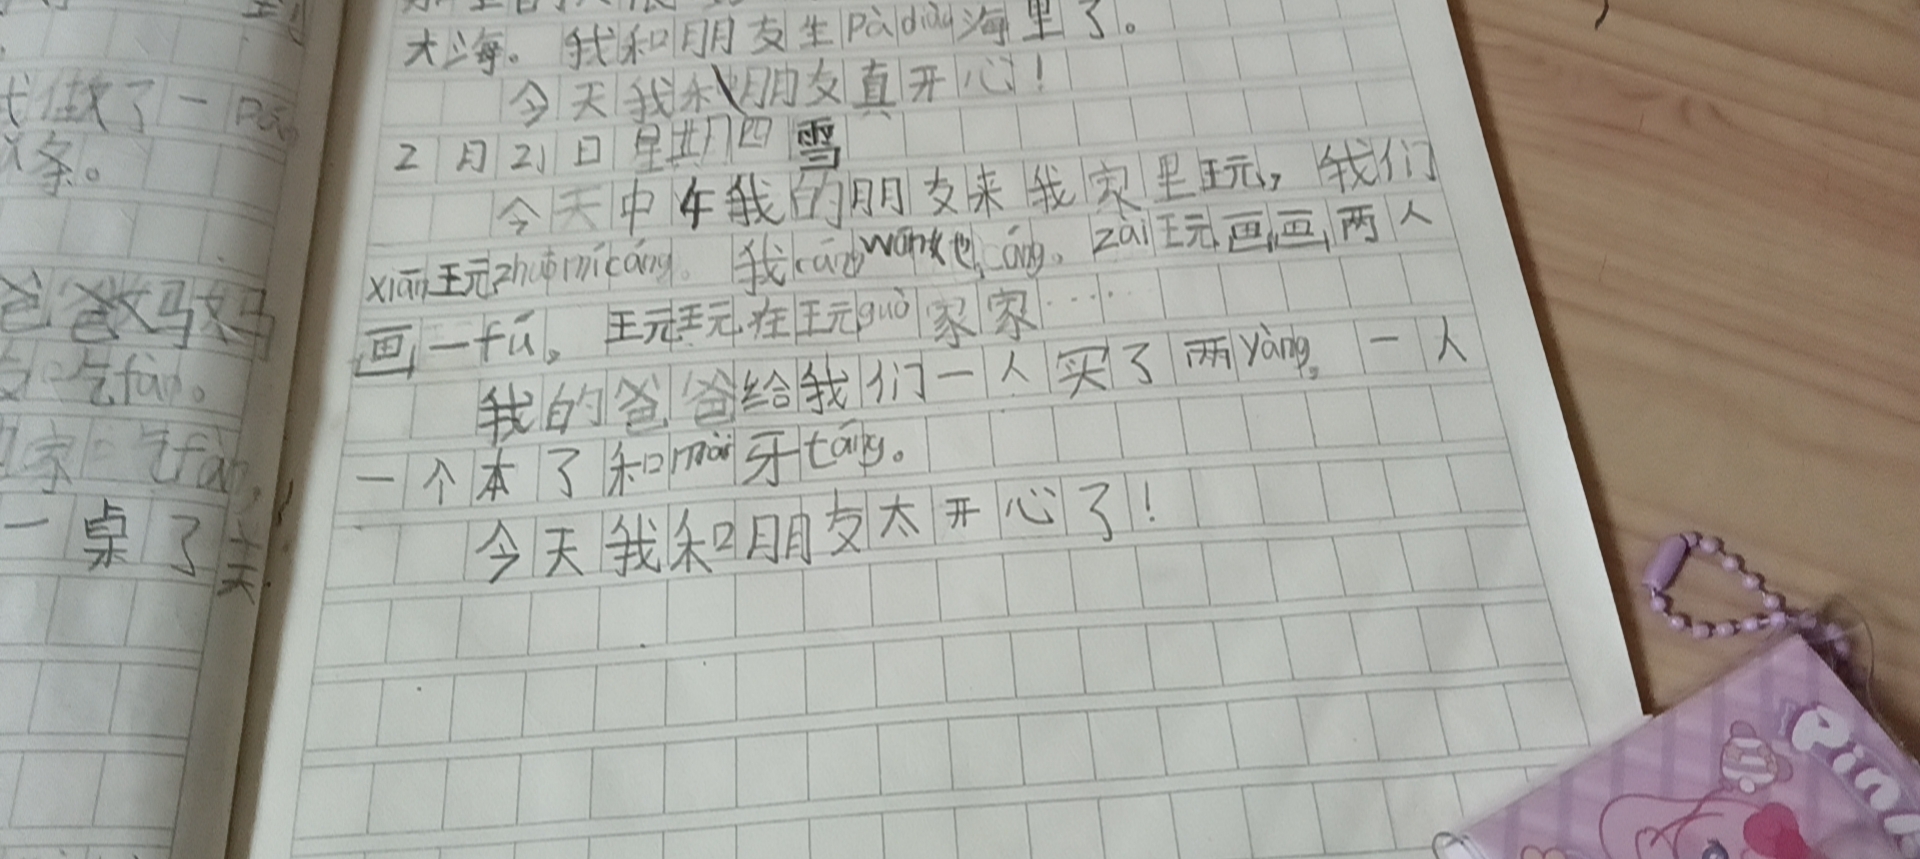 了
弌做了一pá
条。
爸爸妈妈
吃fàn。
家吃fàn,
一桌了天
大海。我和朋友生pàdiào海里了。
今天我和朋友真开心!
2月21日星期四雪
今天中午我的朋友来我家里玩,我们
xiān玩zhuōmícáng。我cángwán他cáng。zài玩画画,两人
画一fú。玩玩在玩guò家家……
我的爸爸给我们一人买了两yàng,一人
一个本了和mài牙táng。
今天我和朋友太开心了!
Pin